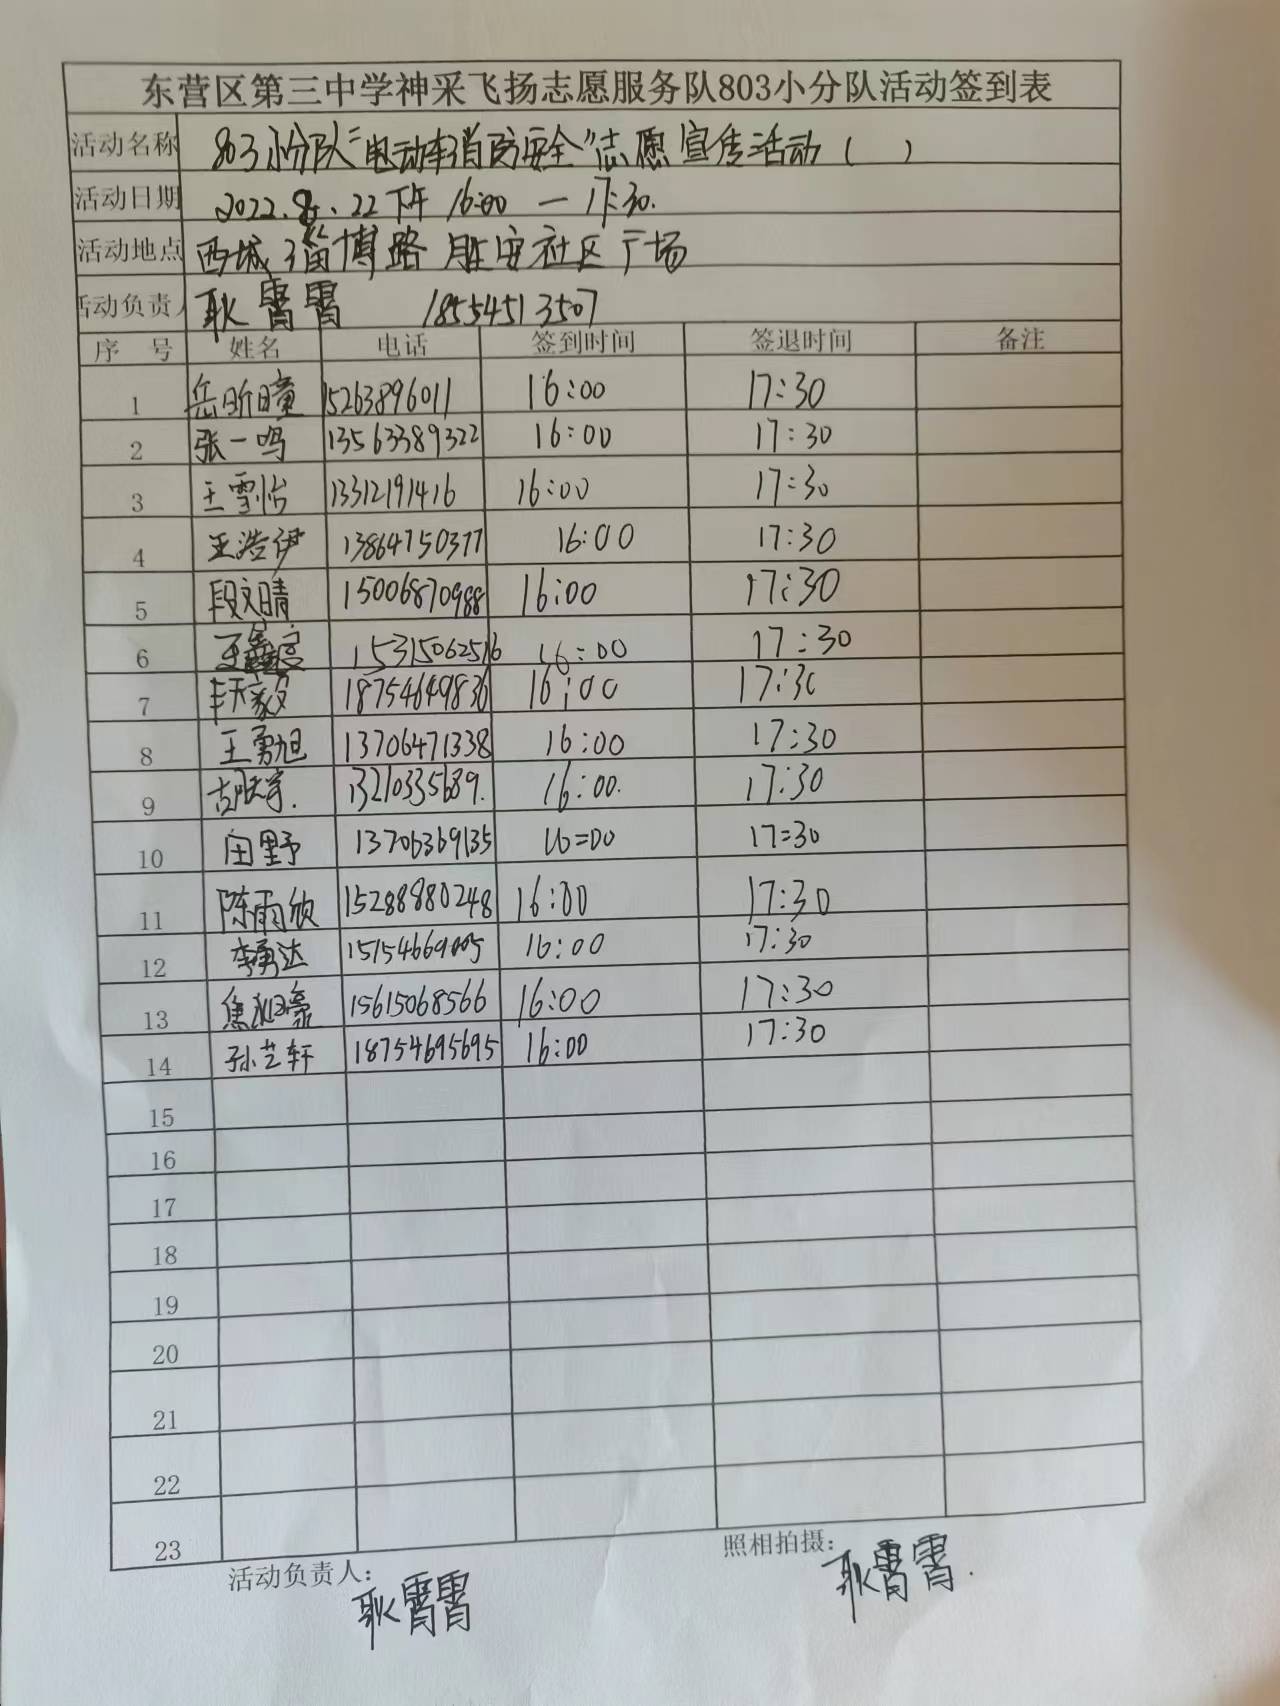 东营区第三中学神采飞扬志愿服务队803小分队活动签到表
活动名称 803小分队“电动车消防安全”志愿宣传活动（ ）
活动日期 2022.8.22下午 16:00 — 17:30.
活动地点 西城淄博路胜安社区广场
活动负责人 耿霄霄 18554513507
序 号 姓名 电话 签到时间 签退时间 备注
1 岳昕瞳 15263896011 16:00 17:30
2 张一鸣 13563389322 16:00 17:30
3 王雪怡 13312191416 16:00 17:30
4 王浩伊 13864750377 16:00 17:30
5 段文晴 15006870988 16:00 17:30
6 15315062516 16:00 17:30
7 18754649836 16:00 17:30
8 王勇旭 13706471338 16:00 17:30
9 13210335689. 16:00. 17:30
10 田野 13706369135 16:00 17:30
11 陈雨欣 15288880248 16:00 17:30
12 李勇达 15154669005 16:00 17:30
13 焦 豪 15615068566 16:00 17:30
14 孙艺轩 18754695695 16:00 17:30
15
16
17
18
19
20
21
22
23
活动负责人: 耿霄霄 照相拍摄: 耿霄霄.